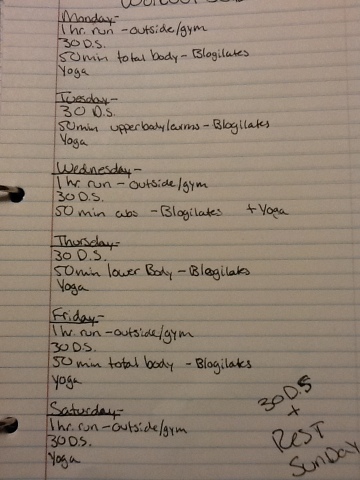 Workout
Monday-
1 hr. run - outside/gym
30 D.S.
50 min total body - Blogilates
Yoga
Tuesday-
30 D.S.
50 min upperbody/arms - Blogilates
Yoga
Wednesday-
1 hr. run - outside/gym
30 D.S.
50 min abs - Blogilates + Yoga
Thursday-
30 D.S.
50 min lower Body - Blogilates
Yoga
Friday-
1 hr. run - outside/gym
30 D.S.
50 min total body - Blogilates
Yoga
Saturday-
1 hr. run - outside/gym
30 D.S.
Yoga
30 D.S
+
REST
SUNDAY